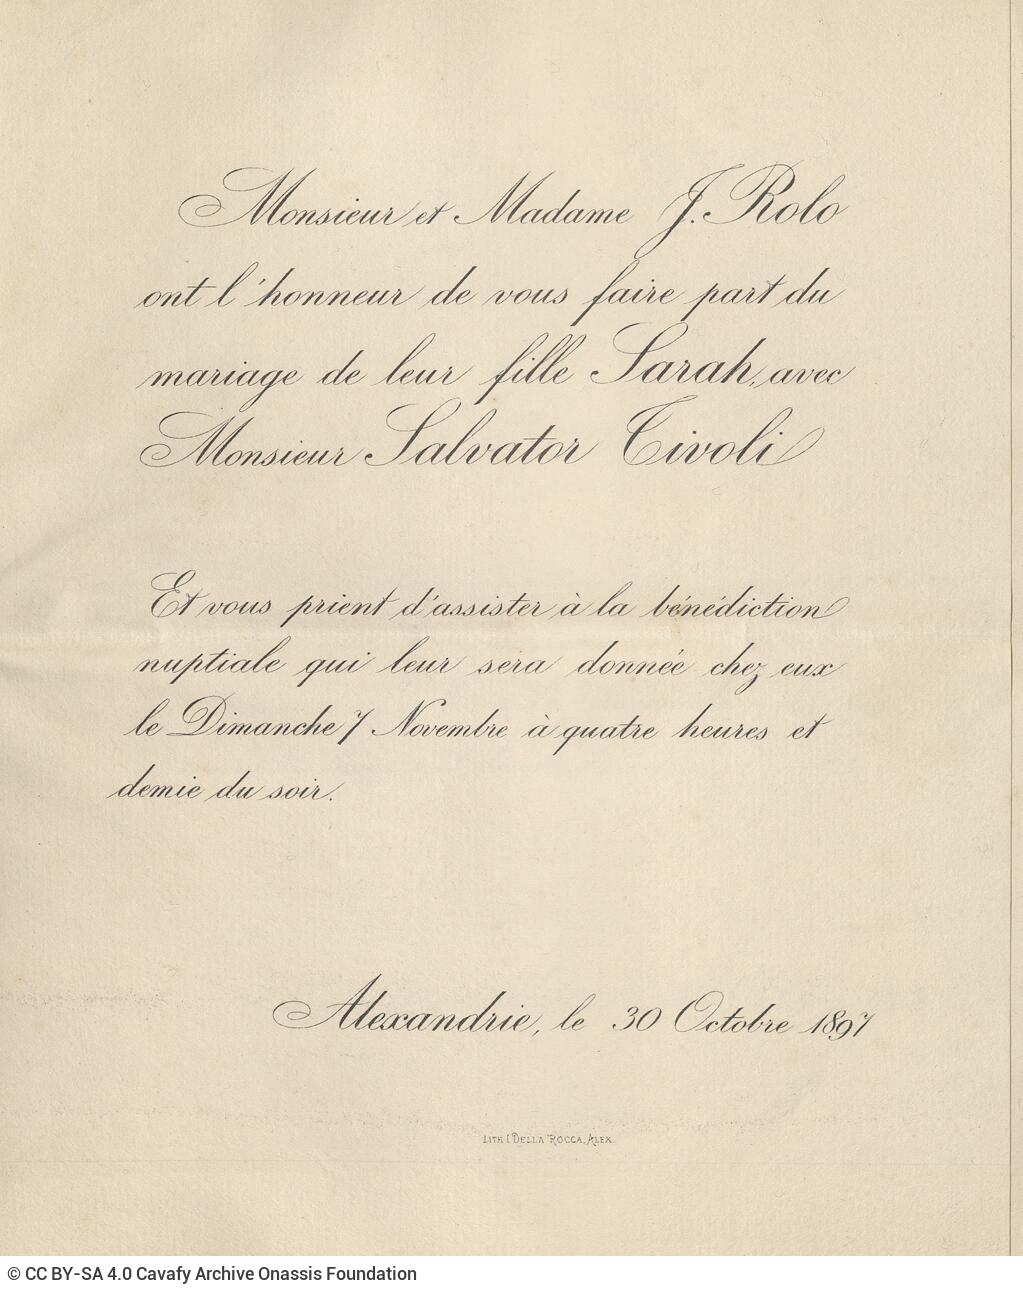 Monsieur et Madame J. Rolo
ont l'honneur de vous faire part du
mariage de leur fille Sarah, avec
Monsieur Salvator Tivoli
Et vous prient d'assister à la bénédiction
nuptiale qui leur sera donnée chez eux
le Dimanche 7 Novembre à quatre heures et
demie du soir.
Alexandrie, le 30 Octobre 1897
LITH I DELLA ROCCA, ALEX.
© CC BY-SA 4.0 Cavafy Archive Onassis Foundation